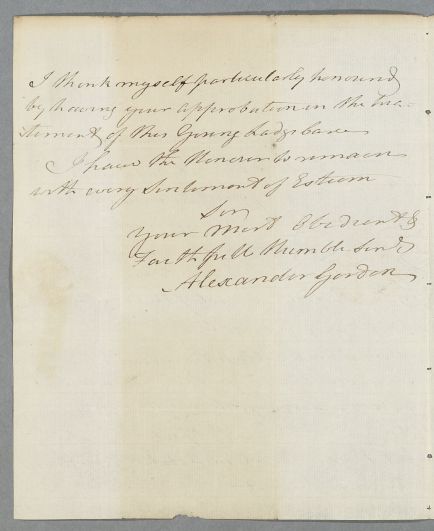 I think myself particularly honoured
by having your approbation in the trea-
tment of this Young Ladys Case
I have the Honour to remain
with every Sentiment of Esteem
Sir
Your Most Obedient &
Faithfull Humble Servt
Alexander Gordon